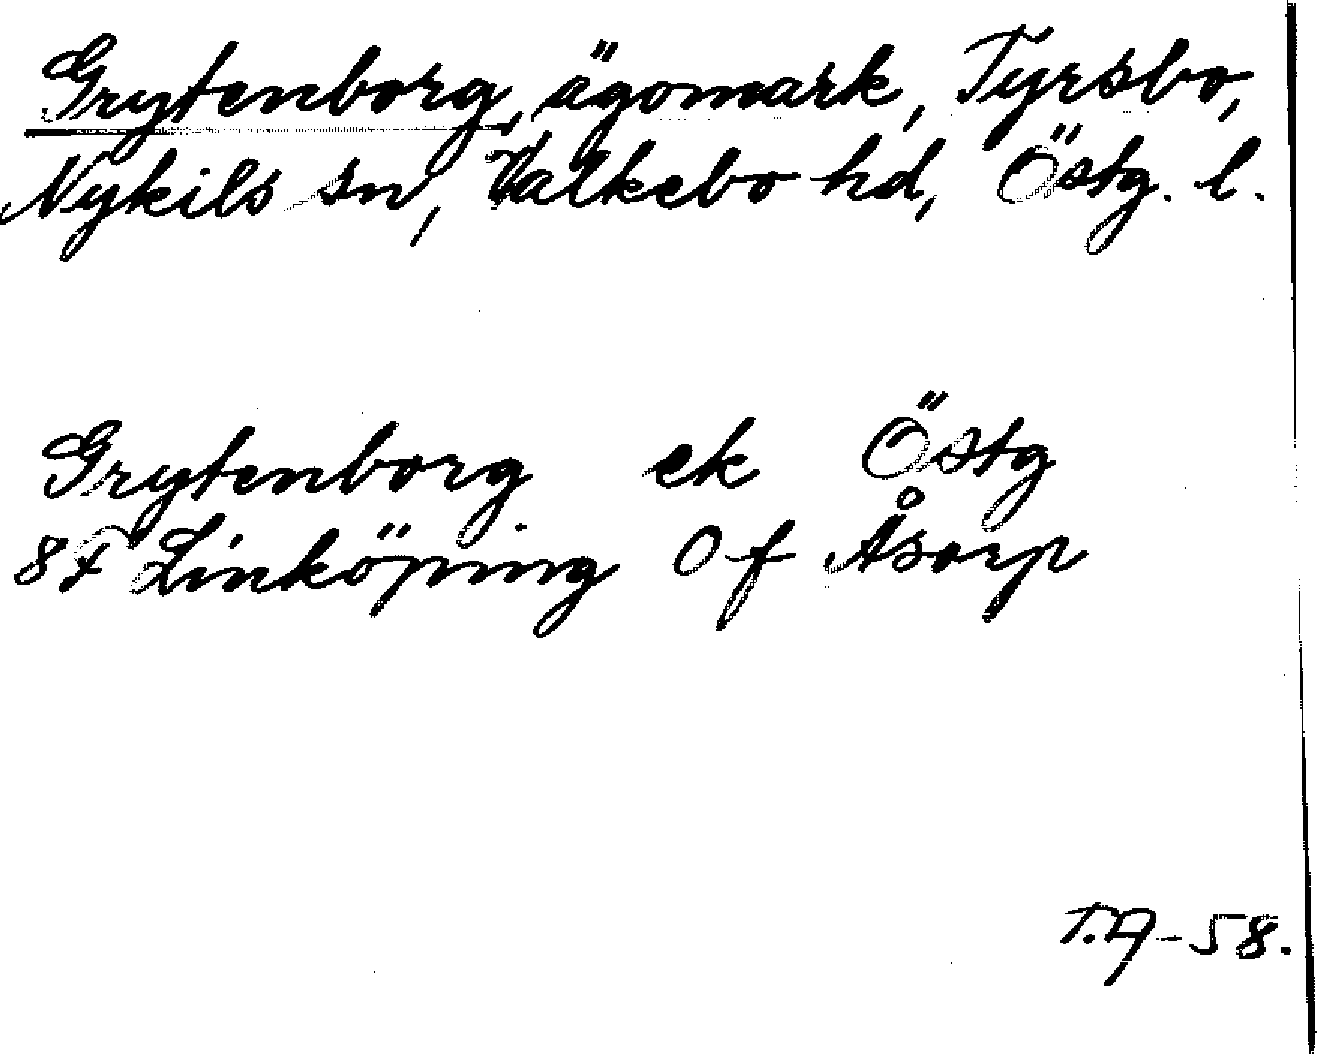 Grytenborg, ägomark, Tyrsbo,
Nykils sn, Valkebo hd, Östg. l.
Grytenborg ek Östg
8F Linköping Of Åsarp
-58.